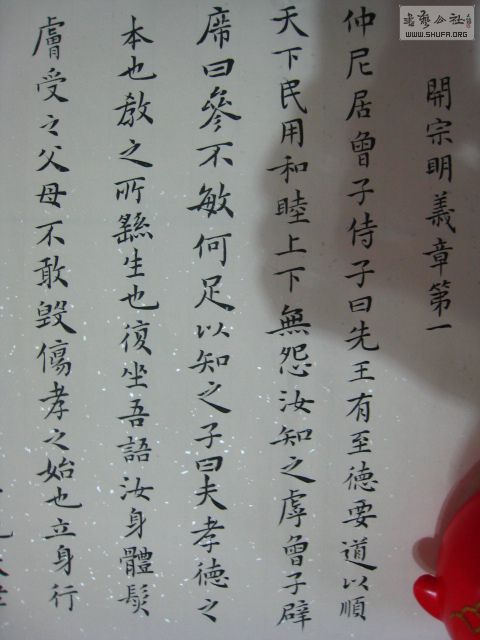 開宗明義章第一
仲尼居曾子侍子曰先王有至德要道以順
天下民用和睦上下無怨汝知之虖曾子辟
席曰參不敏何足以知之子曰夫孝德之
本也教之所繇生也復坐吾語汝身體髮
膚受之父母不敢毀傷孝之始也立身行
書藝公社
WWW.SHUFA.ORG